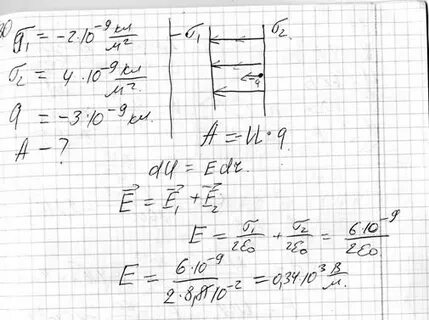 σ₁ = -2·10⁻⁹ кл/м²
σ₂ = 4·10⁻⁹ кл/м²
q = -3·10⁻⁹ кл.
A - ?
-σ₁ σ₂
-q
A = U·q
dU = Edr.
E⃗ = E⃗₁ + E⃗₂
E = σ₁/2ε₀ + σ₂/2ε₀ = 6·10⁻⁹/2ε₀
E = 6·10⁻⁹/2·8,8·10⁻² = 0,34·10³ В/м.